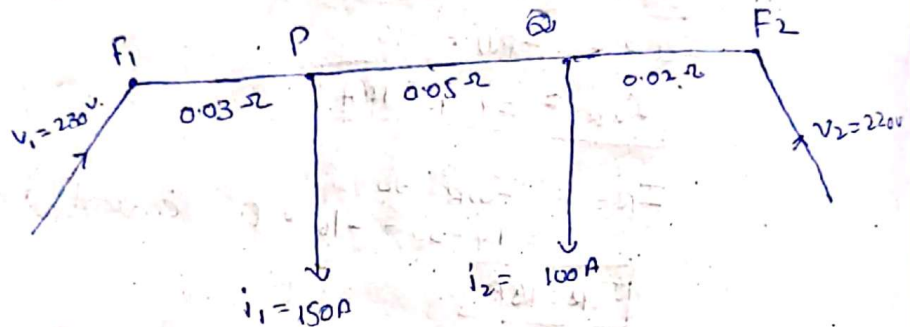 F1 P Q F2
V1 = 230V. 0.03 Ω 0.05 Ω 0.02 Ω V2 = 220V
i1 = 150A i2 = 100A